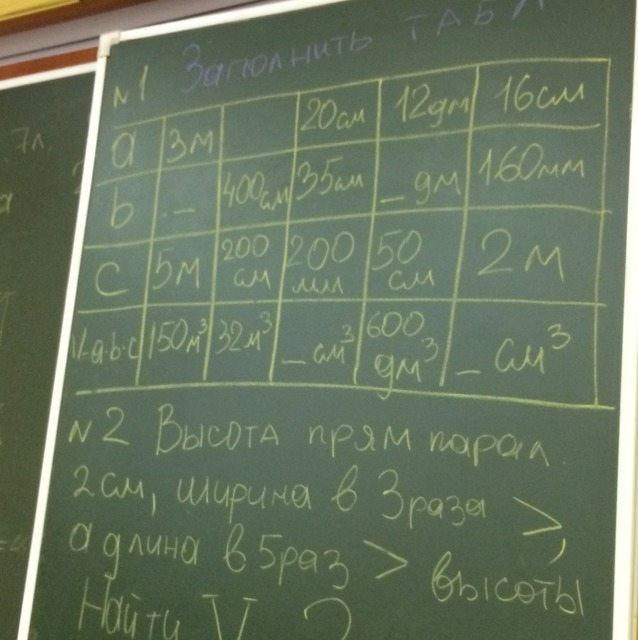 7л.
Заполнить табл
№1
a 3м 20см 12дм 16см
b _ 400см 35см _ дм 160мм
c 5м 200 см 200 мм 50 см 2м
V=a·b·c 150м³ 32м³ _ см³ 600 дм³ _ см³
№2 Высота прям парал.
2см, ширина в 3раза >,
а длина в 5раз > высоты
Найти V-?